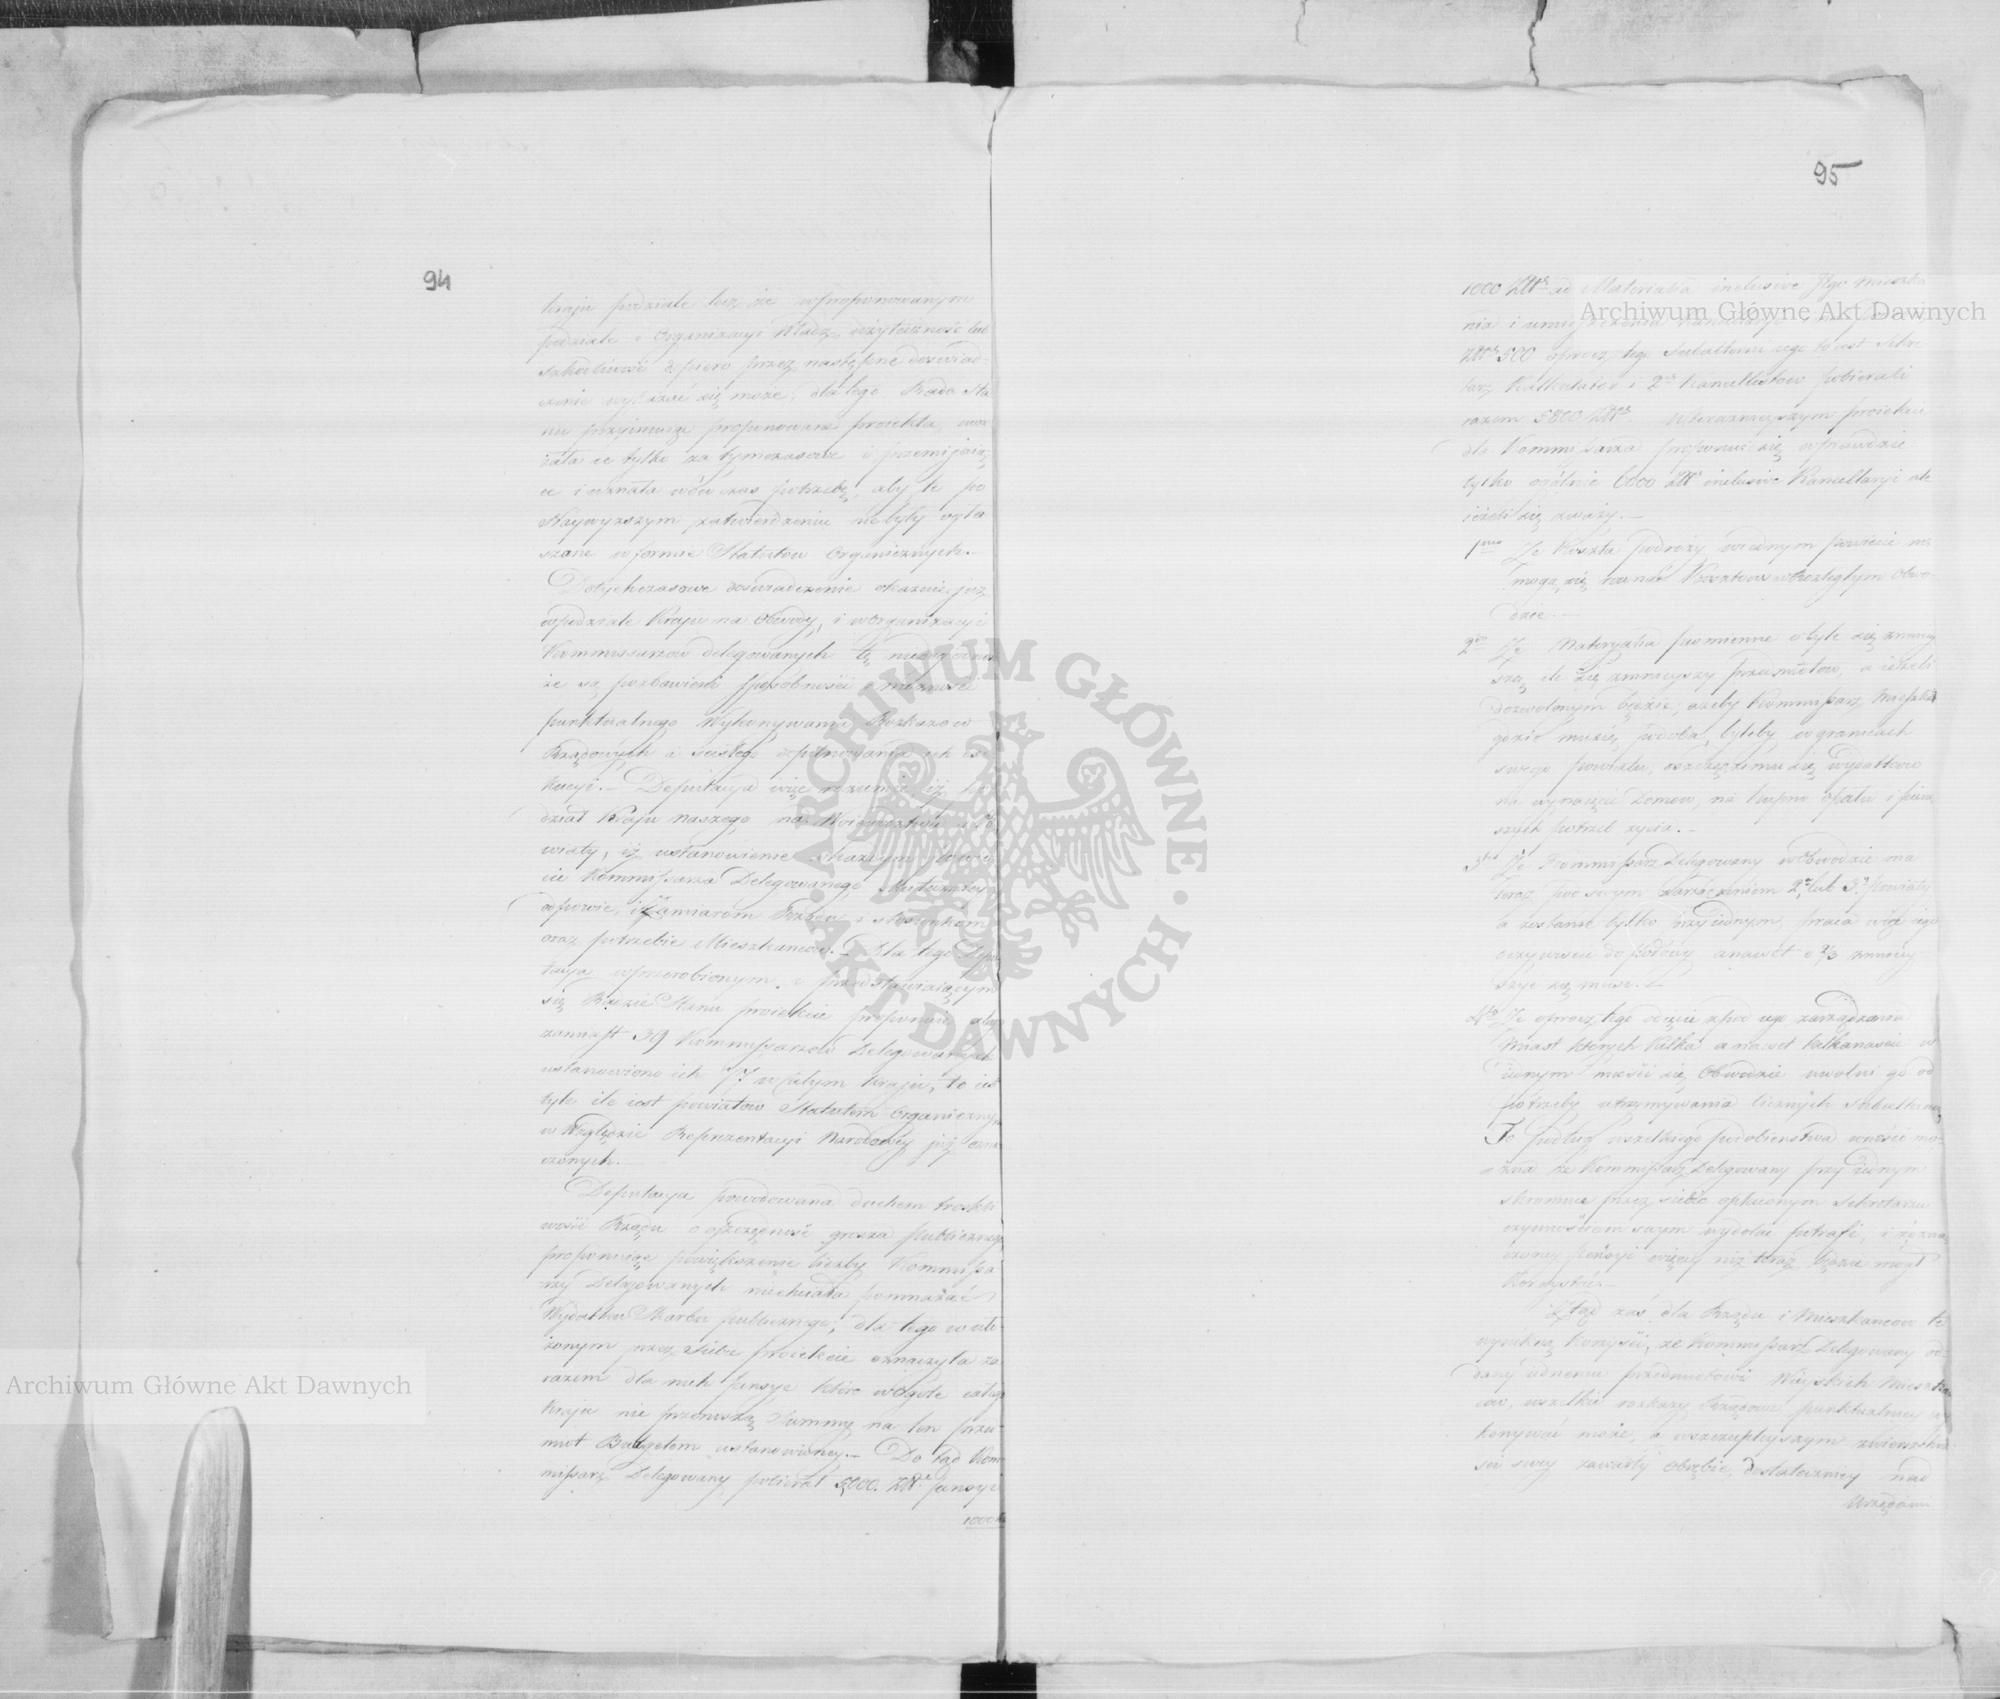 94
kraju podziale lecz że w proponowanym
podziale i Organizacyi Władz, użyteczność lub
szkodliwość dopiero przez następne doświad-
czenie wykazać się może, dla tego Rada Sta
nu przyimuiąc proponowane proiekta, uwa
żała ie tylko za tymczasowe i przemijaią
ce i uznała wówczas potrzebę, aby te po
Naywyższym zatwierdzeniu nie były ogła
szane w formie Statutów Organicznych.—
Dotychczasowe doświadczenie okazuie już
w podziale Kraju na Obwody, i w Organizacyi
Kommissarzów delegowanych tę
że są pozbawieni sposobności i możności
punktualnego Wykonywania Rozkazów
Rządowych i ścisłego dopilnowania ich exe
kucyi.— Deputacya więc rozumie, iż po
dział Kraju naszego na Woiewództwa i Po
wiaty, iż ustanowienie w każdym powie
cie Kommissarza Delegowanego skuteczniey
odpowie, i Zamiarom Rządu i stosunkom
oraz potrzebie Mieszkańców.— Dla tego Depu
tacya w przerobionym i przedstawiaiącym
się Radzie Stanu proiekcie proponuie, aby
zamiast 39 Kommissarzów Delegowanych
ustanowiono ich 77 w całym kraju, to iest
tyle ile iest powiatów Statutem Organicznym
w Względzie Reprezentacyi Narodowey już ozna
czonych.—
Deputacya powodowana duchem troskli
wości Rządu o oszczędność grosza publicznego,
proponuiąc powiększenie liczby Kommissa
rzy Delegowanych nie chciała pomnażać
Wydatku Skarbu publicznego, dla tego w uło-
żonym przez siebie proiekcie oznaczyła za
razem dla nich pensye które w ogóle całego
Kraju nie przenoszą Summy na ten przed
miot Budgetem ustanowioney.— Do tąd Kom
missarz Delegowany pobierał 5,000. Złł. pensyi
1000 Zł
95
1000 Złłp ad Materialia inclusive Jego mieszka
nia i umieszczenia kancellaryi
Złłp 500 oprócz tego Subalterni iego to iest Sekre
tarz Kalkulator i 2ch Kancellistów pobierali
razem 5800 Złłp W teraznieyszym proiekcie
dla Kommissarza proponuie się wprawdzie
tylko ogólnie 6000 Złł inclusive Kancellaryi ale
ieżeli się zważy.—
1mo Że Koszta Podróży w iednym powiecie nie
mogą się równać Kosztom w rozległym Obwo-
dzie.—
2do Że Materyalia piśmienne o tyle się zmniey
szą, ile się zmnieyszy przedmiotów, a ieżeli
dozwolonym będzie, ażeby Kommissarz mieszkał
gdzie mu się podoba, byleby w granicach
swego powiatu, oszczędzi mu się wydatków
na wynaięcie Domów, na kupno opału i pierw
szych potrzeb życia.—
3tio Że Kommissarz Delegowany w Obwodzie ma
teraz pod swym Zarządzeniem 2. lub 3. Powiaty
a zostanie tylko przy iednym, praca więc iego
oczywiście do połowy a nawet o 2/3 zmniey
szyć się musi.—
4to Że oprócz tego odięcie z pod iego zarządzania
Miast których kilka a nawet kilkanaście w
iednym mieści się Obwodzie uwolni go od
potrzeby utrzymywania licznych subalternów,
To podług wszelkiego podobieństwa wnosić mo-
żna że Kommissarz Delegowany przy iednym
skromnie przez siebie opłaconym Sekretarzu
czynnościom swym wydołać potrafi, i z ozna
czoney pensyi więcey niż teraz będzie mógł
Korzystać.—
Ztąd zaś dla Rządu i Mieszkańców ta
wyniknie korzyść, że Kommissarz Delegowany od-
dany iednemu przedmiotowi Wieyskich Mieszkań
ców, wszelkie rozkazy Rządowe punktualniey wy
konywać może, a w szczupleyszym zwierzchno
ści swey zawarty obrębie, dostateczniey nad
Urzędami
Archiwum Główne Akt Dawnych
Archiwum Główne Akt Dawnych
ARCHIWUM GŁÓWNE AKT DAWNYCH